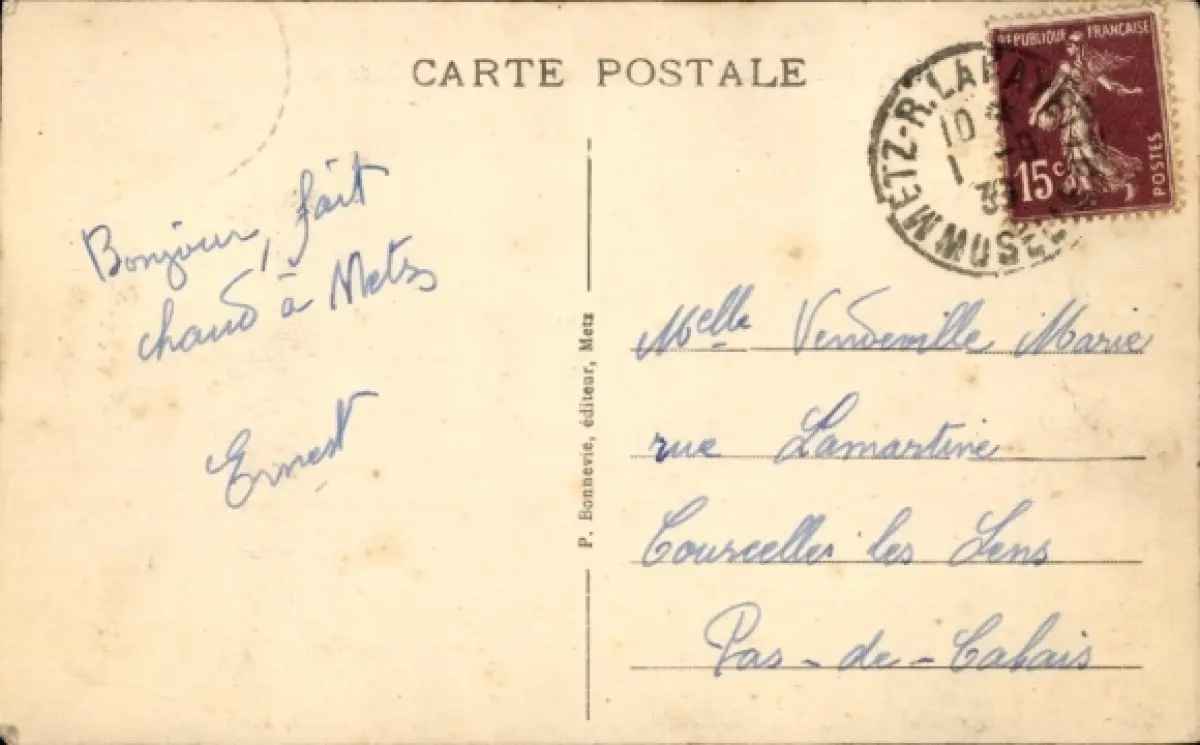 CARTE POSTALE
REPUBLIQUE FRANÇAISE
15c
POSTES
METZ-R.
10
1
Bonjour, fait
chaud à Metz
Ernest
P. Bonnevie, éditeur, Metz
Melle Vendeville Marie
rue Lamartine
Courcelles les Lens
Pas-de-Calais